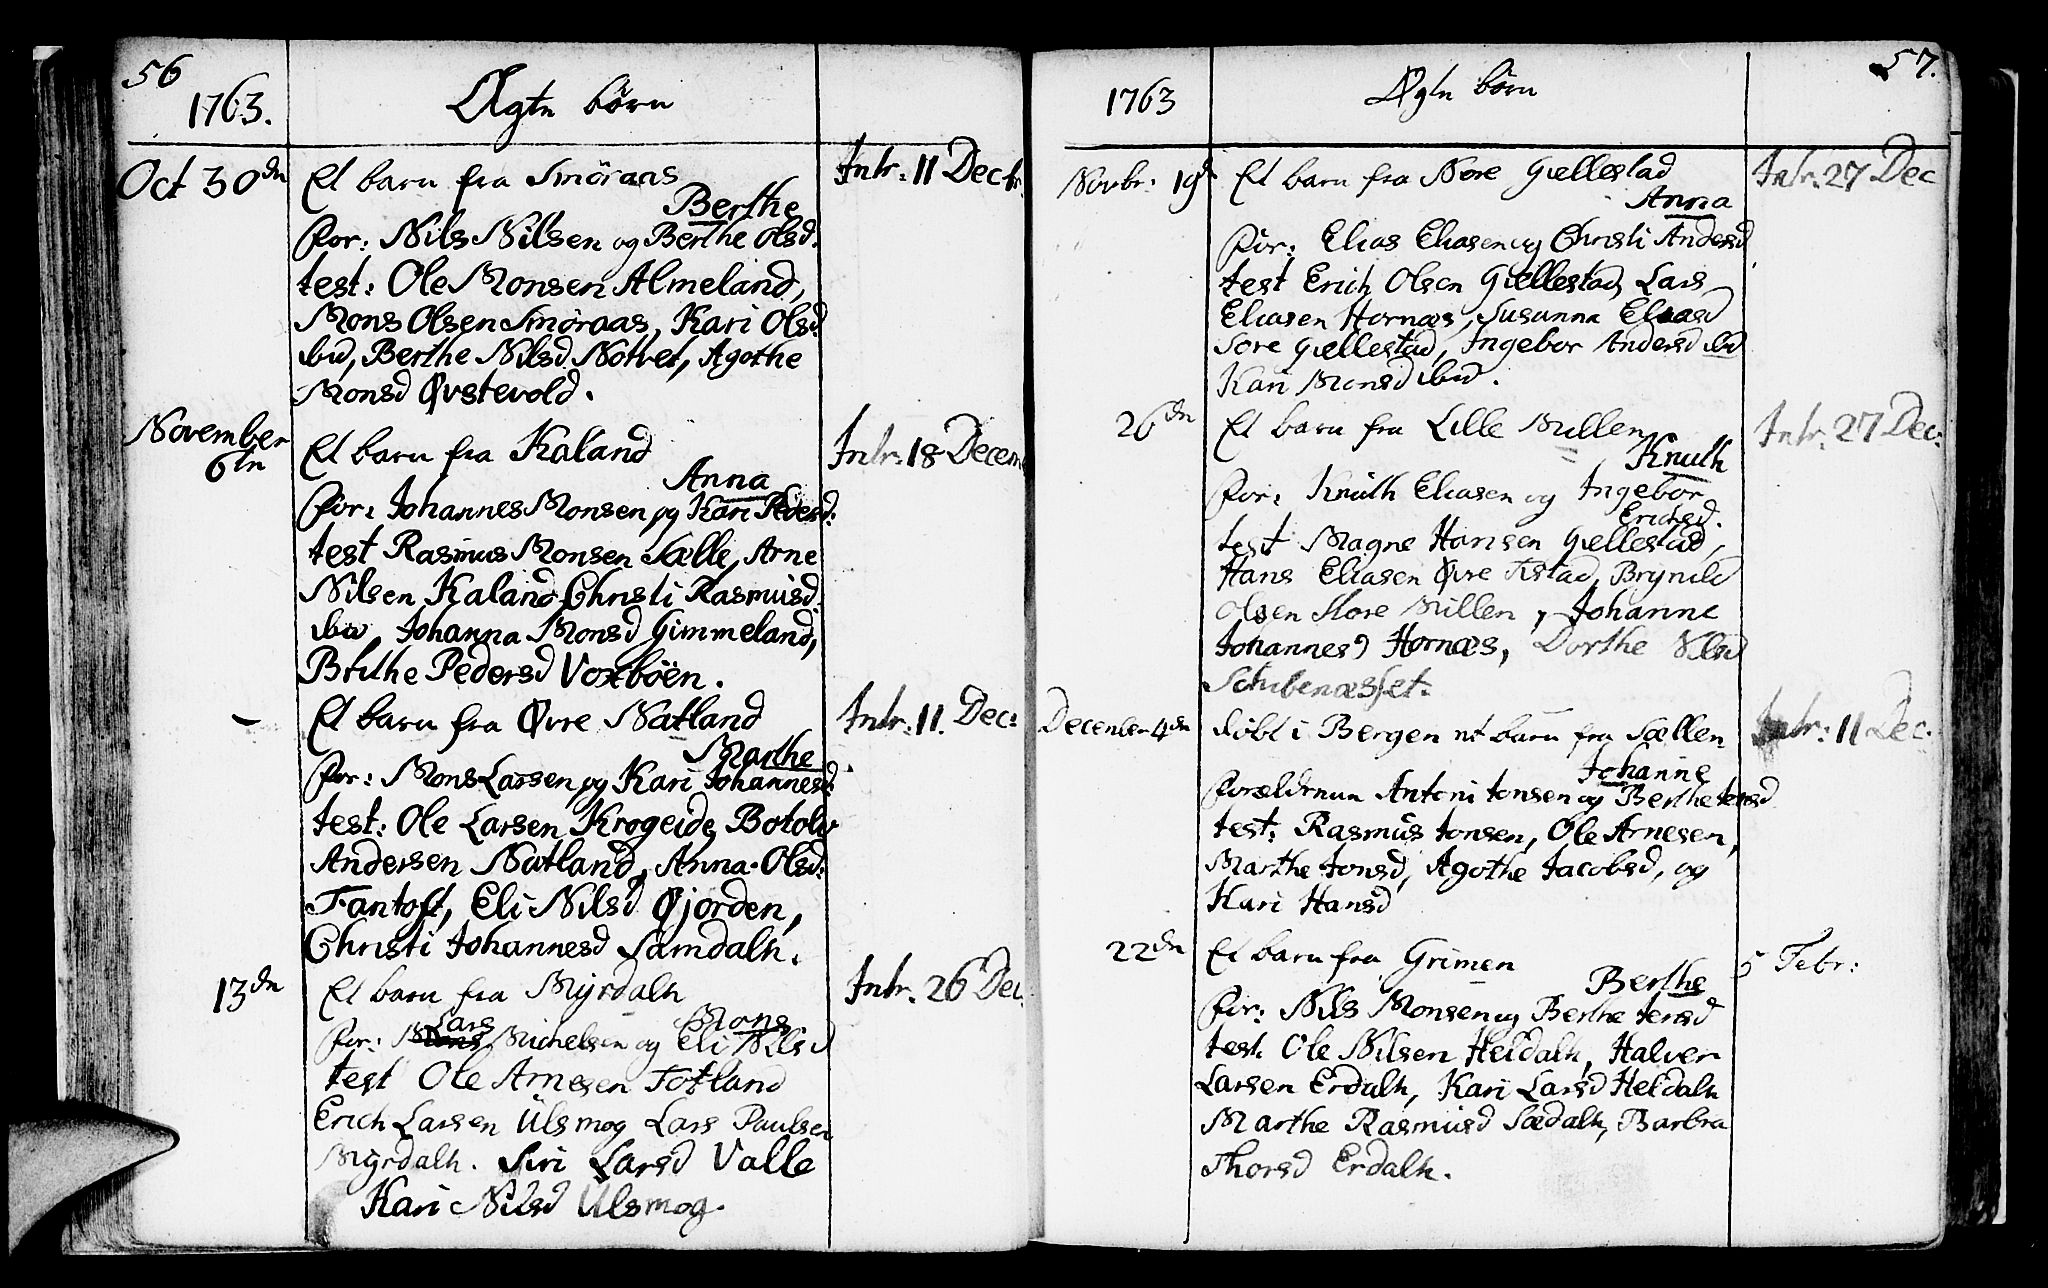 56
1763.
Ægte börn
Oct 30 dn
Et barn fra Smöraas
Intr: 11 Decbr.
Berthe
for: Nils Nilsen og Berthe Olsd:
test: Ole Monsen Almeland,
Mons Olsen Smöraas, Kari Olsd
ibid, Berthe Nilsd Notvet, Agothe
Monsd Øvstevold.
November
6te
Et barn fra Kaland
Intr: 18 Decem
Anna
for: Johannes Monsen og Kari Pedersd:
test Rasmus Monsen Sælle, Arne
Nilsen Kaland, Christi Rasmusd.
ibid, Johanna Monsd Gimmeland,
Brithe Pedersd Voxböen.
-
Et barn fra Øvre Natland
Intr: 11. Dec:
Marthe
for: Mons Larsen og Kari Johannesd:
test: Ole Larsen Krogeide, Botolv
Andersen Natland, Anna Olsd:
Fantoft, Eli Nilsd Øjorden,
Christi Johannesd Samdalh.
13 dn
Et barn fra Myrdalh
Intr. 26 Dec.
Lars
Mons
for: Mons Michelsen og Eli Nilsd
test Ole Arnesen Totland
Erich Larsen Ulsmog Lars Paulsen
Myrdalh. Siri Larsd Valle
Kari Nilsd Ulsmog.
57.
1763
Ægte börn
Novbr: 19 d
Et barn fra Nore Giellestad
Intr: 27 Dec
Anna
for: Elias Eliasen og Christi Andersd
test Erich Olsen Giellestad, Lars
Eliasen Hornæs, Susanna Eliasd
Sore Giellestad, Ingebor Andersd ibid
Kari Monsd ibid.
26 dn
Et barn fra Lille Millen
Intr: 27 Dec:
Knuth
for: Knuth Eliasen og Ingebor
Erichsd.
test Magne Hansen Giellestad,
Hans Eliasen Øvre Tistad, Brynild
Olsen Store Millen, Johanne
Johannesd Hornæs, Dorthe Nilsd
Schibenæsset.
December 4 dn
döbt i Bergen et barn fra Sællen
Intr: 11 Dec:
Johanne
forældrene Antoni Jonsen og Berthe Jensd
test: Rasmus Jonsen, Ole Arnesen,
Marthe Jonsd, Agothe Jacobsd, og
Kari Hansd
22 dn
Et barn fra Grimen
5 Febr:
Berthe
for: Nils Monsen og Berthe Jensd
test. Ole Nilsen Heldalh, Halver
Larsen Erdalh, Kari Larsd Heldalh
Marthe Rasmusd Sædalh, Barbra
Thorsd Erdalh.